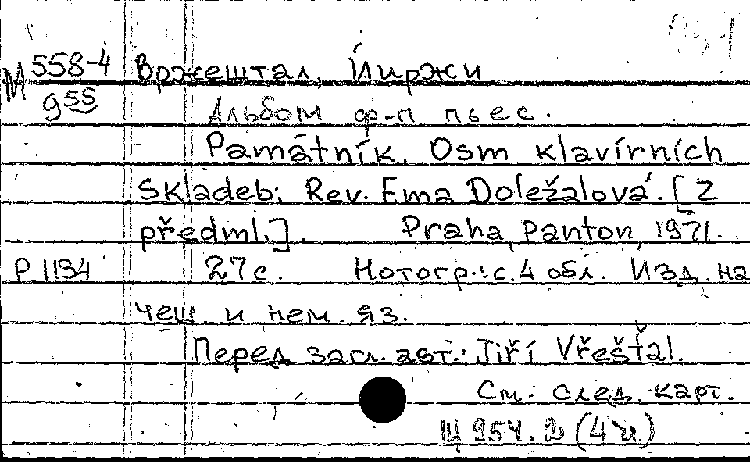 М 558-4 Вржештал, Йиржи
955 Альбом ф-п пьес.
Památník. Osm klavírních
skladeb. Rev. Ema Doležalová. [Z
předml.]. Praha, Panton, 1971.
P 1134 27 с. Нотогр.: с. 4 обл. Изд. на
чеш. и нем. яз.
Перед загл. авт.: Jiří Vřešťál.
См. след. карт.
Щ 954.2 (4 Ч.)